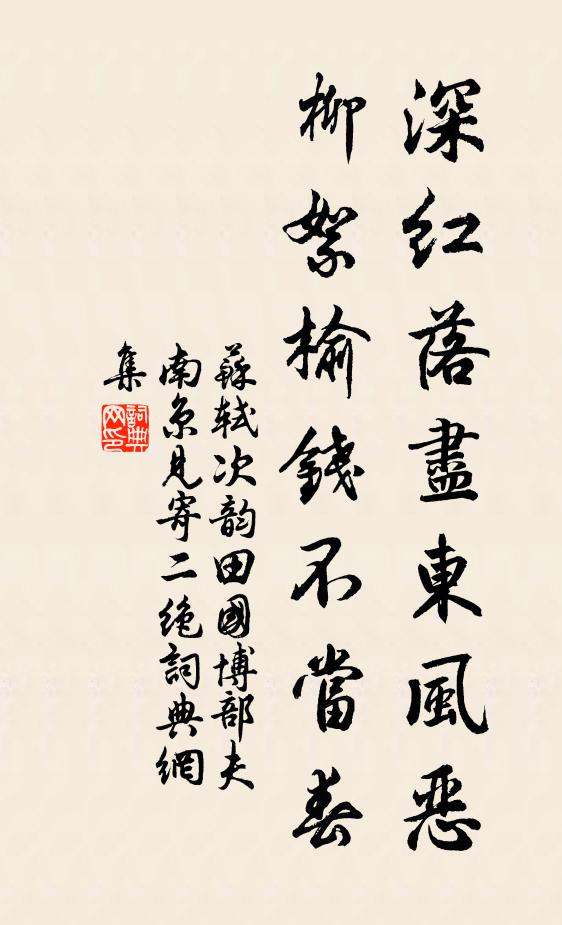 深紅落盡東風惡
柳絮榆錢不當春
蘇軾次韵田國博部夫
南京見寄二絶詞典網
集
詞典
网印